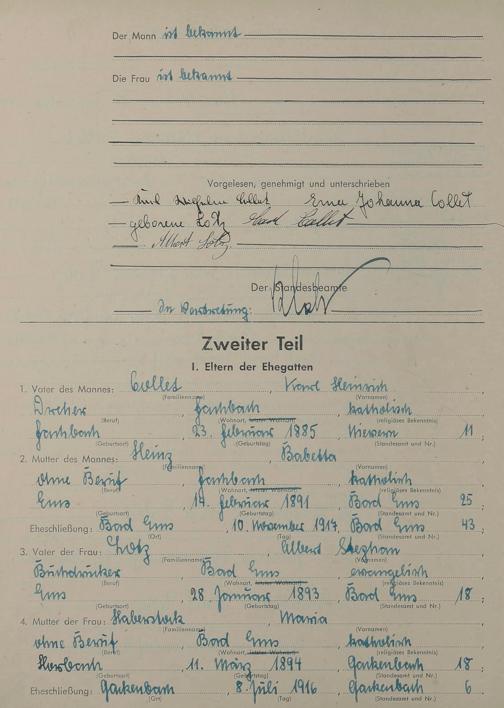 Der Mann ist bekannt
Die Frau ist bekannt
Vorgelesen, genehmigt und unterschrieben
Wilhelm Collet Erna Johanna Collet
geborene Lotz Karl Collet
Albert Lotz
Der Standesbeamte
In Vertretung:
Zweiter Teil
I. Eltern der Ehegatten
1. Vater des Mannes: Collet, Karl Heinrich
(Familienname) (Vornamen)
Dreher, Fachbach, katholisch
(Beruf) (Wohnort, letzter Wohnort) (religiöses Bekenntnis)
Fachbach, 23. Februar 1885, Nievern 11;
(Geburtsort) (Geburtstag) (Standesamt und Nr.)
2. Mutter des Mannes: Heinz, Babetta
(Familienname) (Vornamen)
ohne Beruf, Fachbach, katholisch
(Beruf) (Wohnort, letzter Wohnort) (religiöses Bekenntnis)
Ems, 14. Februar 1891, Bad Ems 25;
(Geburtsort) (Geburtstag) (Standesamt und Nr.)
Eheschließung: Bad Ems, 10. November 1917, Bad Ems 43;
(Ort) (Tag) (Standesamt und Nr.)
3. Vater der Frau: Lotz, Albert Stephan
(Familienname) (Vornamen)
Buchdrucker, Bad Ems, evangelisch
(Beruf) (Wohnort, letzter Wohnort) (religiöses Bekenntnis)
Ems, 28. Januar 1893, Bad Ems 18;
(Geburtsort) (Geburtstag) (Standesamt und Nr.)
4. Mutter der Frau: Haberstock, Maria
(Familienname) (Vornamen)
ohne Beruf, Bad Ems, katholisch
(Beruf) (Wohnort, letzter Wohnort) (religiöses Bekenntnis)
Horbach, 11. März 1894, Gackenbach 18;
(Geburtsort) (Geburtstag) (Standesamt und Nr.)
Eheschließung: Gackenbach, 8. Juli 1916, Gackenbach 6;
(Ort) (Tag) (Standesamt und Nr.)